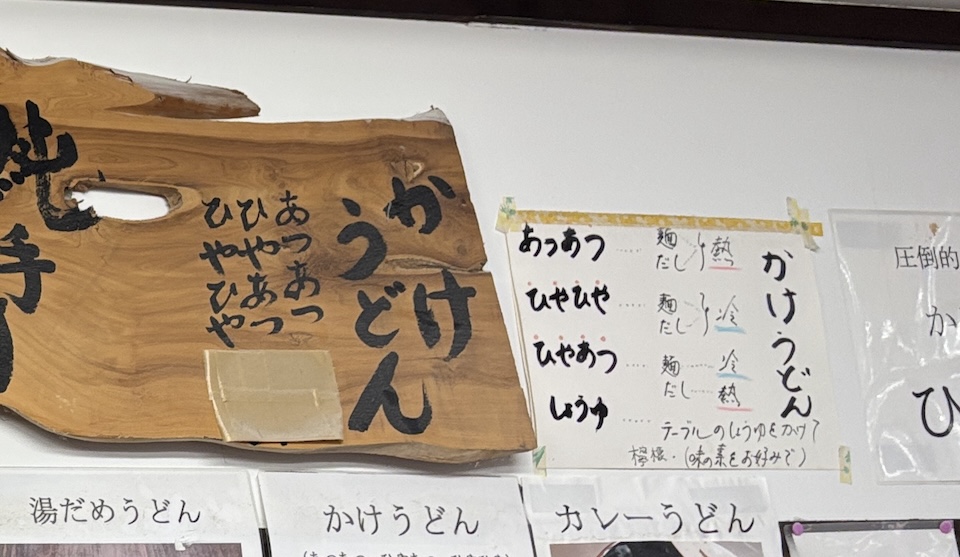 純手
かけ
うどん
あつあつ
ひやあつ
ひやひや
かけうどん
あつあつ 麺 だし 熱
ひやひや 麺 だし 冷
ひやあつ 麺 冷
だし 熱
しょうゆ テーブルのしょうゆをかけて
檸檬・(味の素をお好みで)
圧倒的
か
ひ
湯だめうどん
かけうどん
(あつあつ ひやあつ ひやひや)
カレーうどん